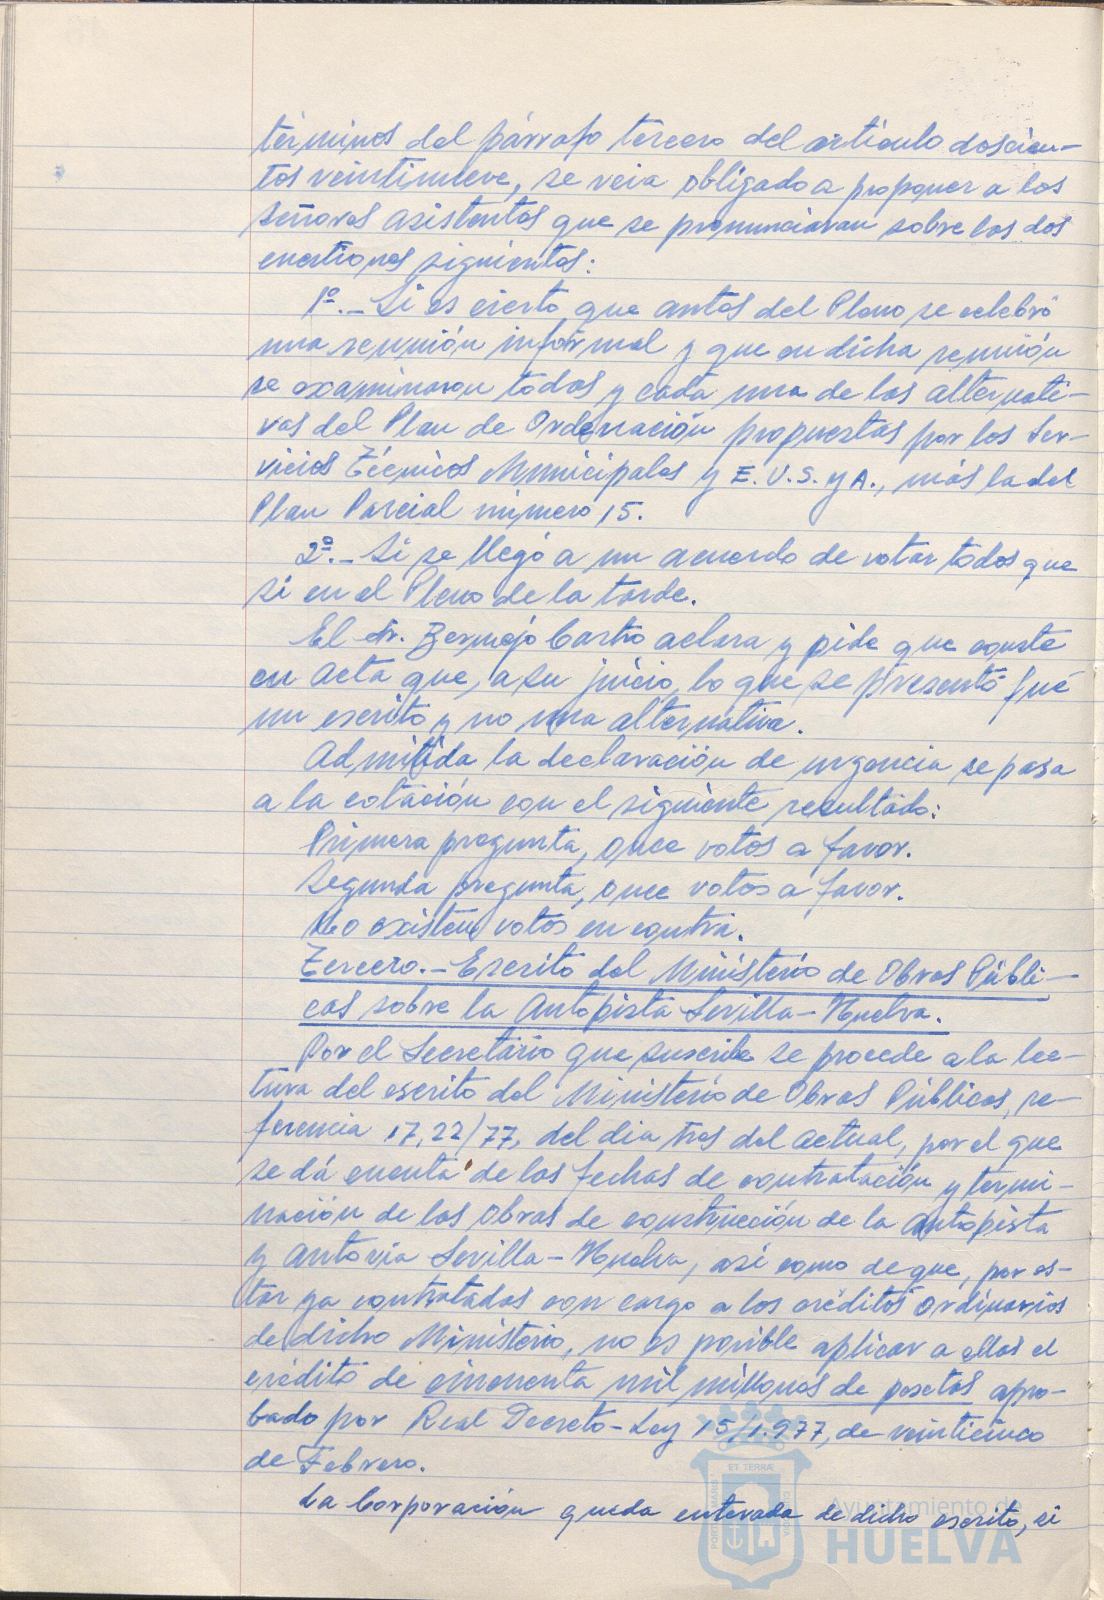 términos del párrafo tercero del artículo doscien-
tos veintinueve, se veia obligado a proponer a los
señores asistentes que se pronunciaran sobre las dos
cuestiones siguientes:
1º.- Si es cierto que antes del Pleno se celebró
una reunión informal y que en dicha reunión
se examinaron todas y cada una de las alternati-
vas del Plan de Ordenación propuestas por los Ser-
vicios Técnicos Municipales y E.U.S. y A., más la del
Plan Parcial número 15.
2º.- Si se llegó a un acuerdo de votar todos que
si en el Pleno de la tarde.
El Sr. Bermejo Castro aclara y pide que conste
en Acta que, a su juicio, lo que se presentó fué
un escrito y no una alternativa.
Admitida la declaración de urgencia se pasa
a la votación con el siguiente resultado:
Primera pregunta, once votos a favor.
Segunda pregunta, once votos a favor.
No existen votos en contra.
Tercero.- Escrito del Ministerio de Obras Públi-
cas sobre la Autopista Sevilla-Huelva.
Por el Secretario que suscribe se procede a la lec-
tura del escrito del Ministerio de Obras Públicas, re-
ferencia 17,22/77, del dia tres del actual, por el que
se dá cuenta de las fechas de contratación y termi-
nación de las Obras de construcción de la Autopista
y Autovia Sevilla-Huelva, asi como de que, por es-
tar ya contratadas con cargo a los créditos ordinarios
de dicho Ministerio, no es posible aplicar a ellas el
crédito de cincuenta mil millones de pesetas apro-
bado por Real Decreto-Ley 15/1.977, de veinticinco
de Febrero.
La Corporación queda enterada de dicho escrito, si
Ayuntamiento de
HUELVA